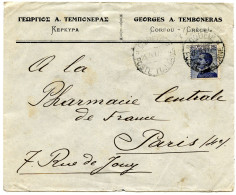 ΓΕΩΡΓΙΟΣ Α. ΤΕΜΠΟΝΕΡΑΣ
ΚΕΡΚΥΡΑ
GEORGES A. TEMBONERAS
CORFOU - (GRÈCE)
A la
Pharmacie Centrale
de France
Paris (4e)
7 Rue de Jouy